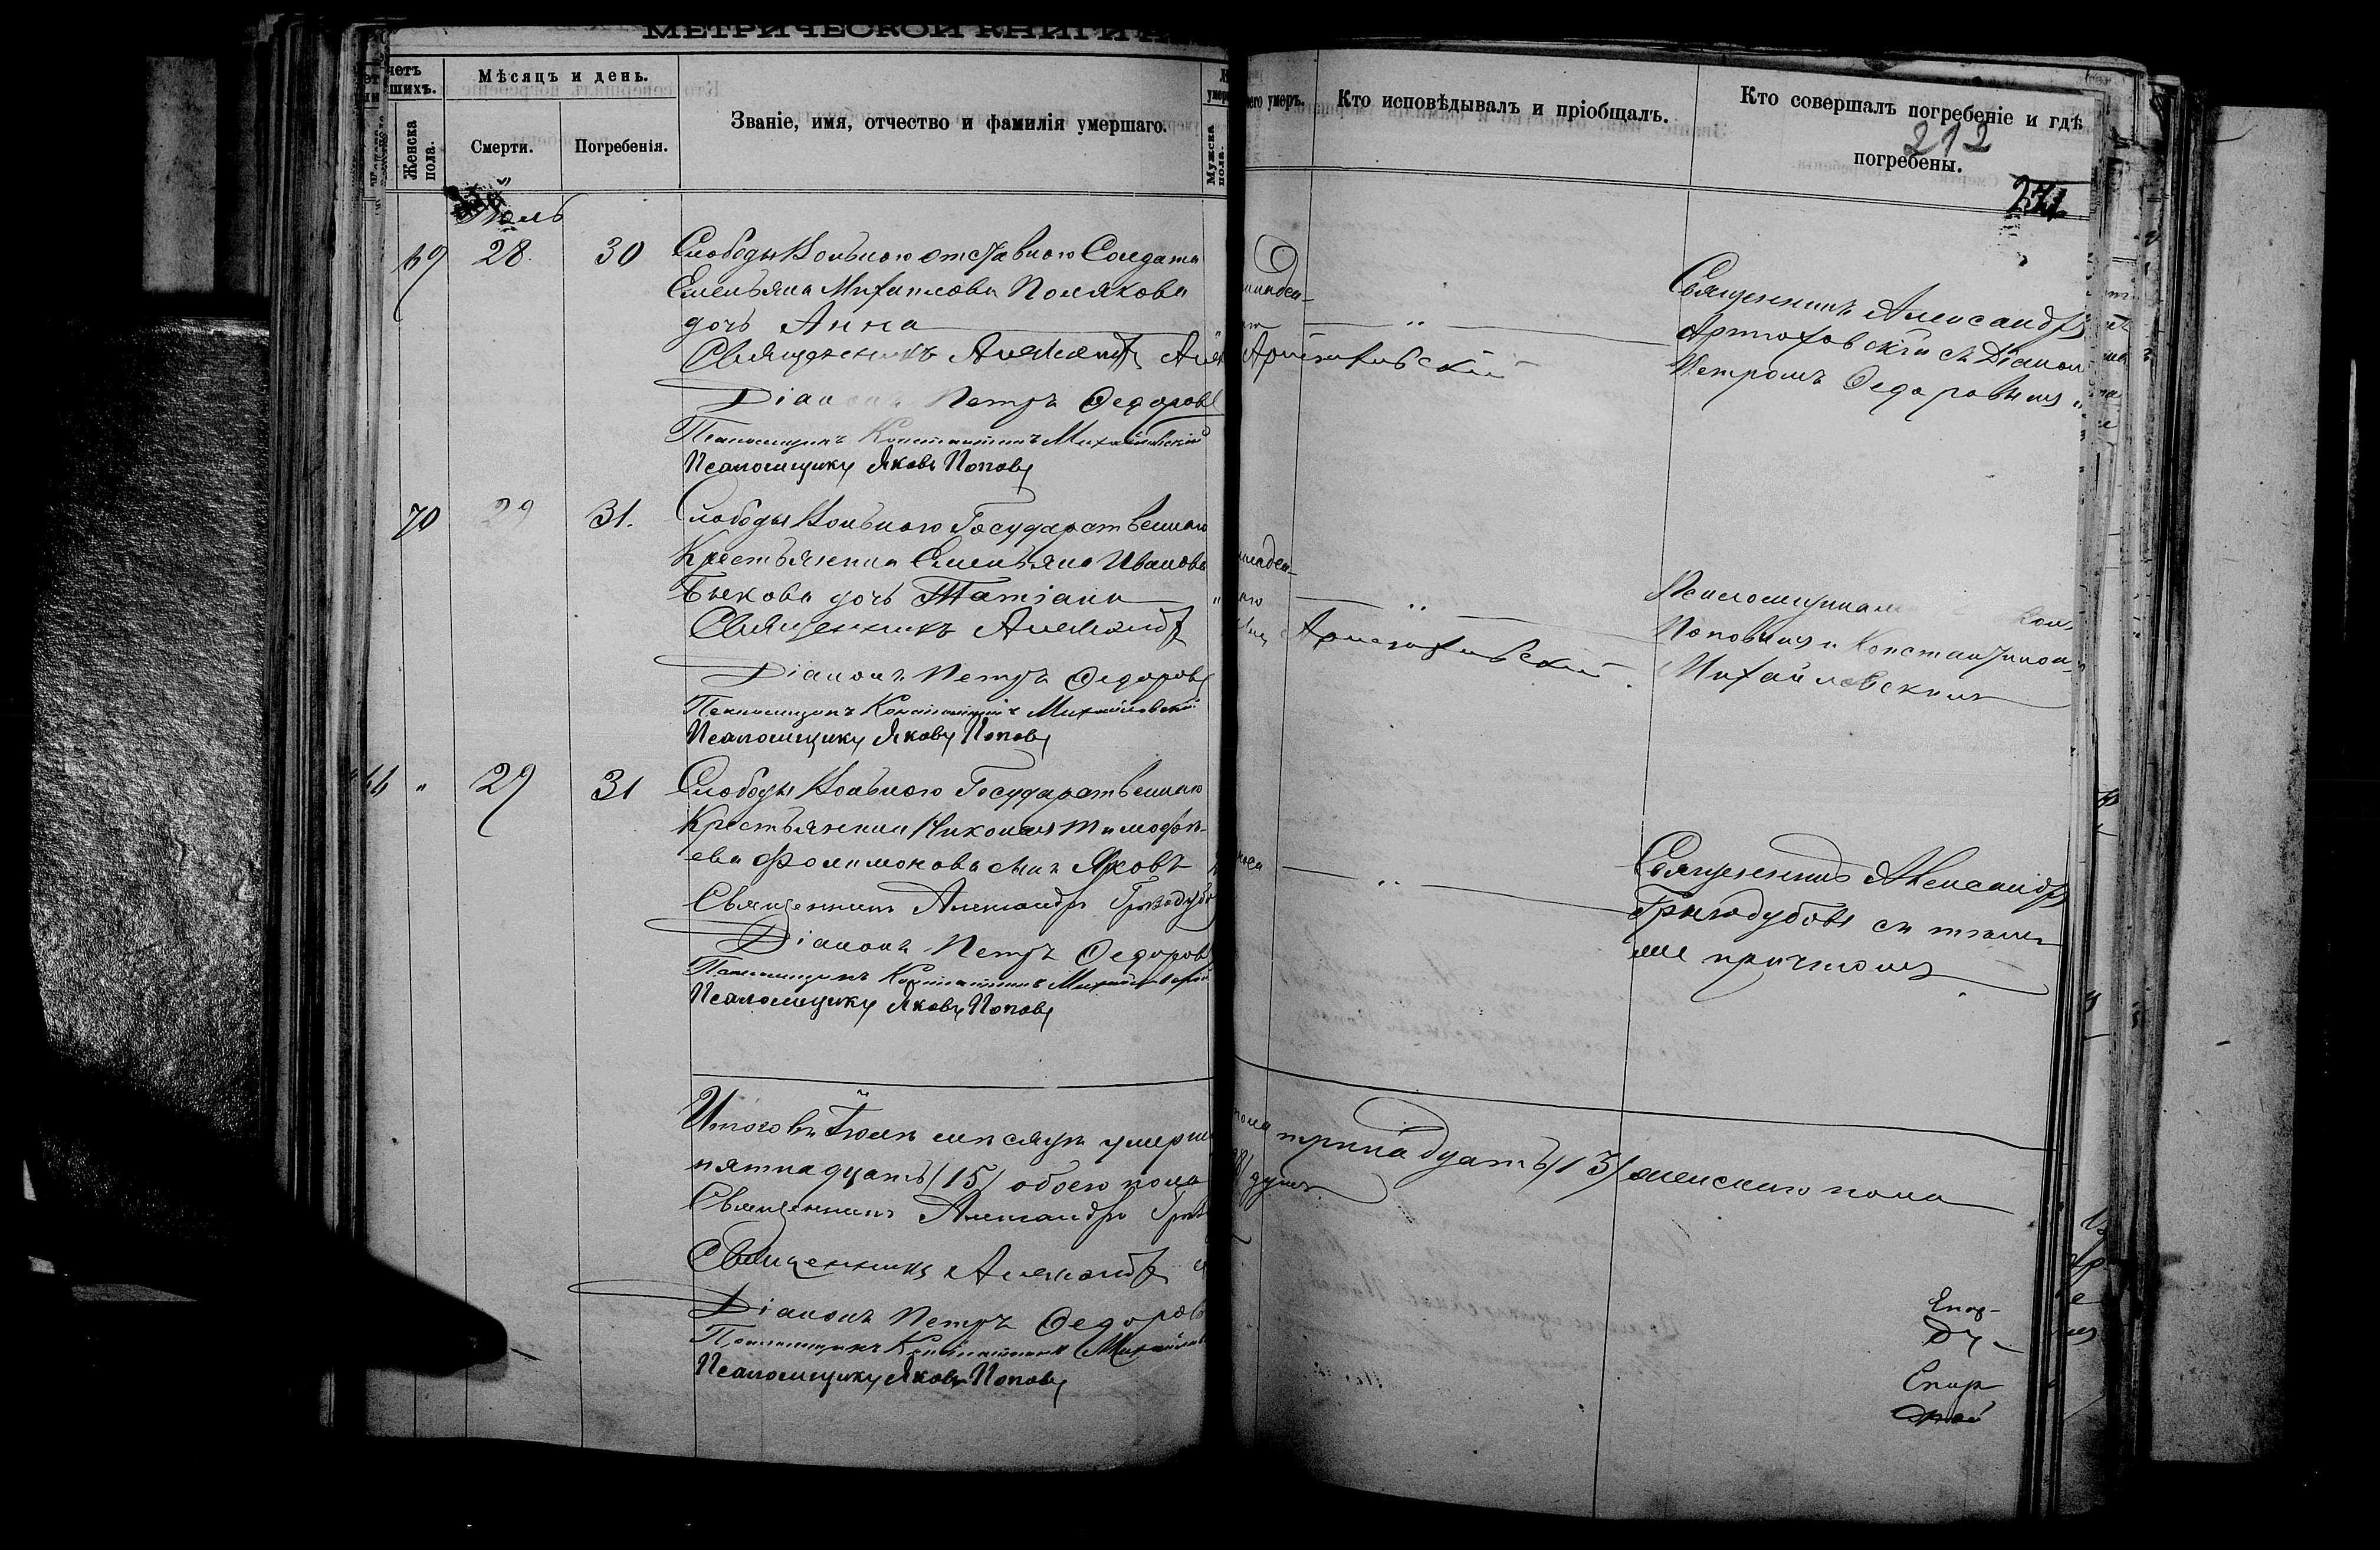 МЕТРИЧЕСКОЙ КНИГИ
четъ
шихъ.
Женска пола.
Мѣсяцъ и день.
Смерти.
Погребенія.
Званіе, имя, отчество и фамилія умершаго.
Мужска пола.
его умеръ.
Кто исповѣдывалъ и пріобщалъ.
Кто совершалъ погребеніе и гдѣ
погребены.
212
271
Іюль
69 28 30 Слободы Вольного отставного Солдата
Емельяна Михаилова Полякова
дочь Анна
Священникъ Александръ Артюховскій
Діаконъ Петръ Ѳедоровъ
Псаломщикъ Константинъ Михайловскій
Псаломщикъ Яковъ Поповъ
младен-
Священникъ Александръ
Артюховскій съ Діакон
Петромъ Ѳедоровымъ
70 29 31. Слободы Вольного Государственного
Крестьянина Емельяна Иванова
Быкова дочь Татіана
Священникъ Александръ Артюховскій
Діаконъ Петръ Ѳедоровъ
Псаломщикъ Константинъ Михайловскій
Псаломщикъ Яковъ Поповъ
младен-
Поповымъ и Константином
Михайловскимъ
" 29 31 Слободы Вольного Государственного
Крестьянина Николая Тимофѣ-
ева Филимонова сынъ Яковъ
Священникъ Александръ
Діаконъ Петръ Ѳедоровъ
Псаломщикъ Константинъ Михайловскій
Псаломщикъ Яковъ Поповъ
Священникъ Александръ
Григодубовъ съ тѣмъ
же причтомъ
Итого въ Іюлѣ мѣсяцѣ умерш
пятнадцать /15/ обоего пола
пола тринадцать /13/ женского пола
душъ
Священникъ Александръ
Священникъ Александръ
Діаконъ Петръ Ѳедоровъ
Псаломщикъ Константинъ Михайлов
Псаломщикъ Яковъ Поповъ